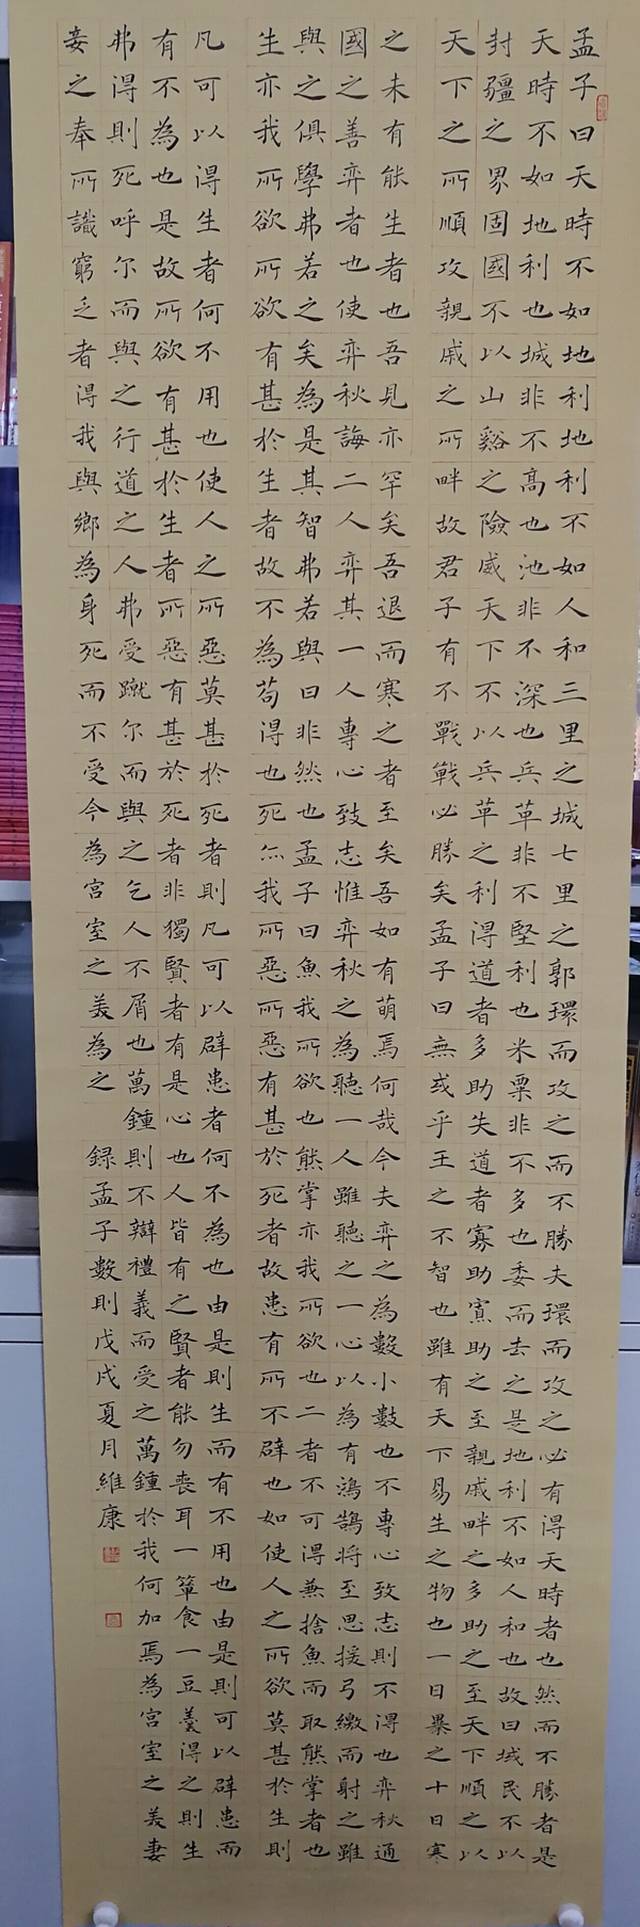 孟子曰天時不如地利地利不如人和三里之城七里之郭環而攻之而不勝夫環而攻之必有得天時者也然而不勝者是
天時不如地利也城非不高也池非不深也兵革非不堅利也米粟非不多也委而去之是地利不如人和也故曰域民不以
封疆之界固國不以山谿之險威天下不以兵革之利得道者多助失道者寡助寡助之至親戚畔之多助之至天下順之以
天下之所順攻親戚之所畔故君子有不戰戰必勝矣孟子曰無或乎王之不智也雖有天下易生之物也一日暴之十日寒
之未有能生者也吾見亦罕矣吾退而寒之者至矣吾如有萌焉何哉今夫弈之為數小數也不專心致志則不得也弈秋通
國之善弈者也使弈秋誨二人弈其一人專心致志惟弈秋之為聽一人雖聽之一心以為有鴻鵠將至思援弓繳而射之雖
與之俱學弗若之矣為是其智弗若與曰非然也孟子曰魚我所欲也熊掌亦我所欲也二者不可得兼捨魚而取熊掌者也
生亦我所欲所欲有甚於生者故不為苟得也死亦我所惡所惡有甚於死者故患有所不辟也如使人之所欲莫甚於生則
凡可以得生者何不用也使人之所惡莫甚於死者則凡可以辟患者何不為也由是則生而有不用也由是則可以辟患而
有不為也是故所欲有甚於生者所惡有甚於死者非獨賢者有是心也人皆有之賢者能勿喪耳一簞食一豆羹得之則生
弗得則死呼尔而與之行道之人弗受蹴尔而與之乞人不屑也萬鍾則不辯禮義而受之萬鍾於我何加焉為宮室之美妻
妾之奉所識窮乏者得我與鄉為身死而不受今為宮室之美為之 録孟子數則戊戌夏月維康